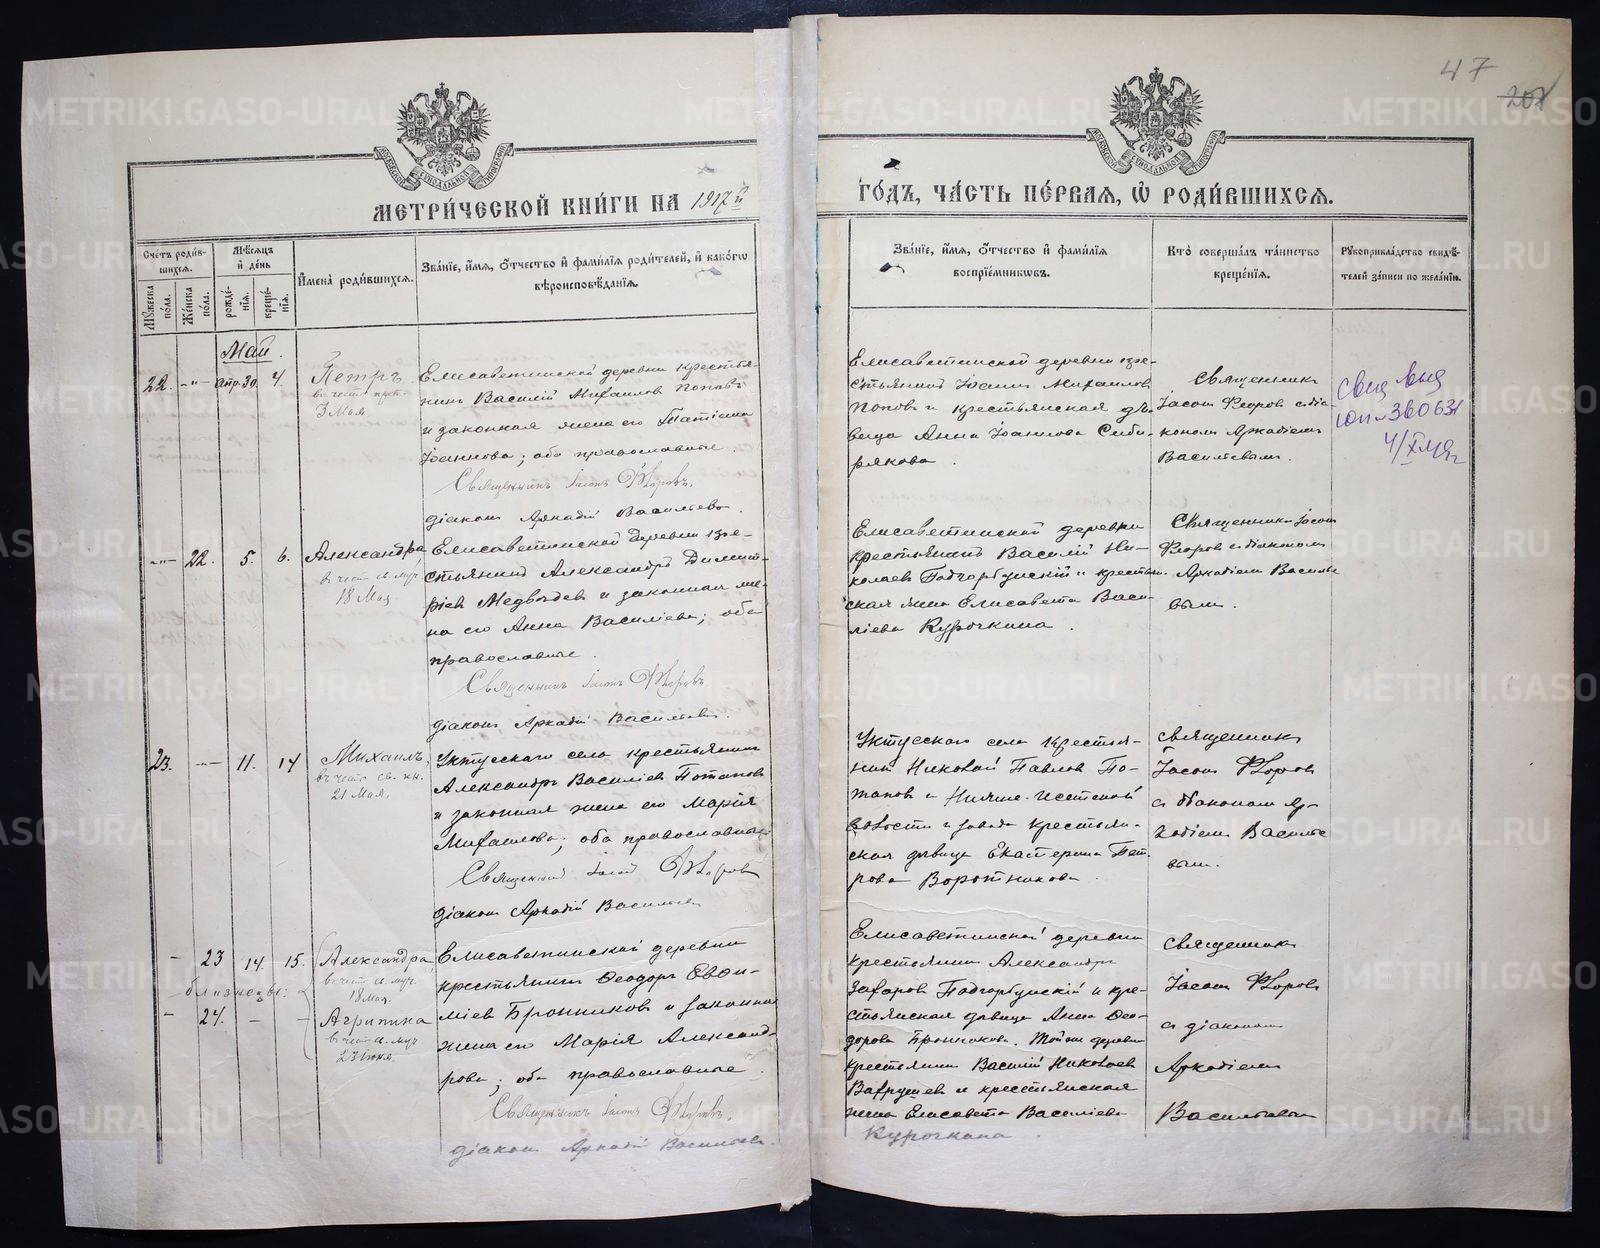 47
207
МЕТРИ́ЧЕСКОЙ КНИ́ГИ НА 1917 й
ГО́ДЪ, ЧА́СТЬ ПЕ́РВАЯ, Ѽ РОДИ́ВШИХСЯ.
Сче́тъ роди́в-
шихся.
Мꙋ́жеска по́ла.
Же́нска по́ла.
Мѣ́сяцъ и́ де́нь
рожде́-
нїя.
креще́-
нїя.
И҆мена̀ роди́вшихся.
Зва́нїе, и҆́мя, ѻ҆́тчество и҆ фами́лїя роди́телей, и҆ како́гѡ
вѣроисповѣ́данїя.
Зва́нїе, и҆́мя, ѻ҆́тчество и҆ фами́лїя
воспрїе́мникѡвъ.
Кто̀ соверша́лъ та́инство
креще́нїя.
Рꙋкоприкла́дство свидѣ́-
телей за́писи по жела́нїю.
Май.
22. -"- апр. 30. 4.
Петръ
въ честь преп.
3 Мая
Елисаветинской деревни крестья-
нинъ Василій Михаиловъ Поповъ
и законная жена его Татіана
Іоаннова; оба православные.
Священникъ Іасонъ Ѳлоровъ.
діаконъ Аркадій Васильевъ.
Елисаветинской деревни кре-
стьянинъ Іоаннъ Михаиловъ
Поповъ и крестьянская дѣ-
вица Анна Іоаннова Сиби-
рякова.
Священникъ
Іасонъ Ѳлоровъ с діа-
кономъ Аркадіемъ
Васильевымъ.
360631
-"- 22. 5. 6.
Александра,
въ честь св. муч.
18 Мая
Елисаветинской деревни кре-
стьянинъ Александръ Димит-
ріев Медвѣдевъ и законная же-
на его Анна Василіева; оба
православные.
Священникъ Іасонъ Ѳлоровъ
діаконъ Аркадій Васильевъ.
Елисаветинской деревни
крестьянинъ Василій Ни-
колаевъ Подгорбунскій и крестьян-
ская жена Елисавета Васи-
ліева Курочкина.
Священникъ Іасонъ
Ѳлоровъ с діакономъ
Аркадіемъ Василье
вымъ.
23. -"- 11. 14
Михаилъ,
въ честь св. кн.
21 Мая.
Уктусскаго села крестьянинъ
Александръ Василіевъ Потаповъ
и законная жена его Марія
Михаилова; оба православные
Священникъ Іасонъ Ѳлоровъ
діаконъ Аркадій Васильевъ
Уктусскаго села крестья-
нинъ Николай Павловъ По-
таповъ и Нижне-Исетской
волости и завода крестьян-
ская дѣвица Екатерина Пет-
рова Воротникова.
Священникъ
Іасонъ Ѳлоровъ
съ діакономъ Ар-
кадіемъ Василье
вымъ.
- 23 14. 15.
близнецы:
- 24. - -
Александра,
въ честь св. муч.
18 Мая.
Агрипина
въ честь св. муч.
23 Іюня.
Елисаветинской деревни
крестьянинъ Ѳеодоръ Евѳи-
міевъ Бронниковъ и законная
жена его Марія Александ-
рова; оба православные.
Священникъ Іасонъ Ѳлоровъ.
діаконъ Аркадій Васильевъ.
Елисаветинской деревни
крестьянинъ Александръ
Захаровъ Подгорбунскій и кре-
стьянская дѣвица Анна Ѳео-
дорова Бронникова. Той же деревни
крестьянинъ Василій Николаевъ
Вахрушев и крестьянская
жена Елисавета Василіева
Курочкина.
Священникъ
Іасонъ Ѳлоровъ
съ діакономъ
Аркадіемъ
Васильевымъ
METRIKI.GASO-URAL.RU